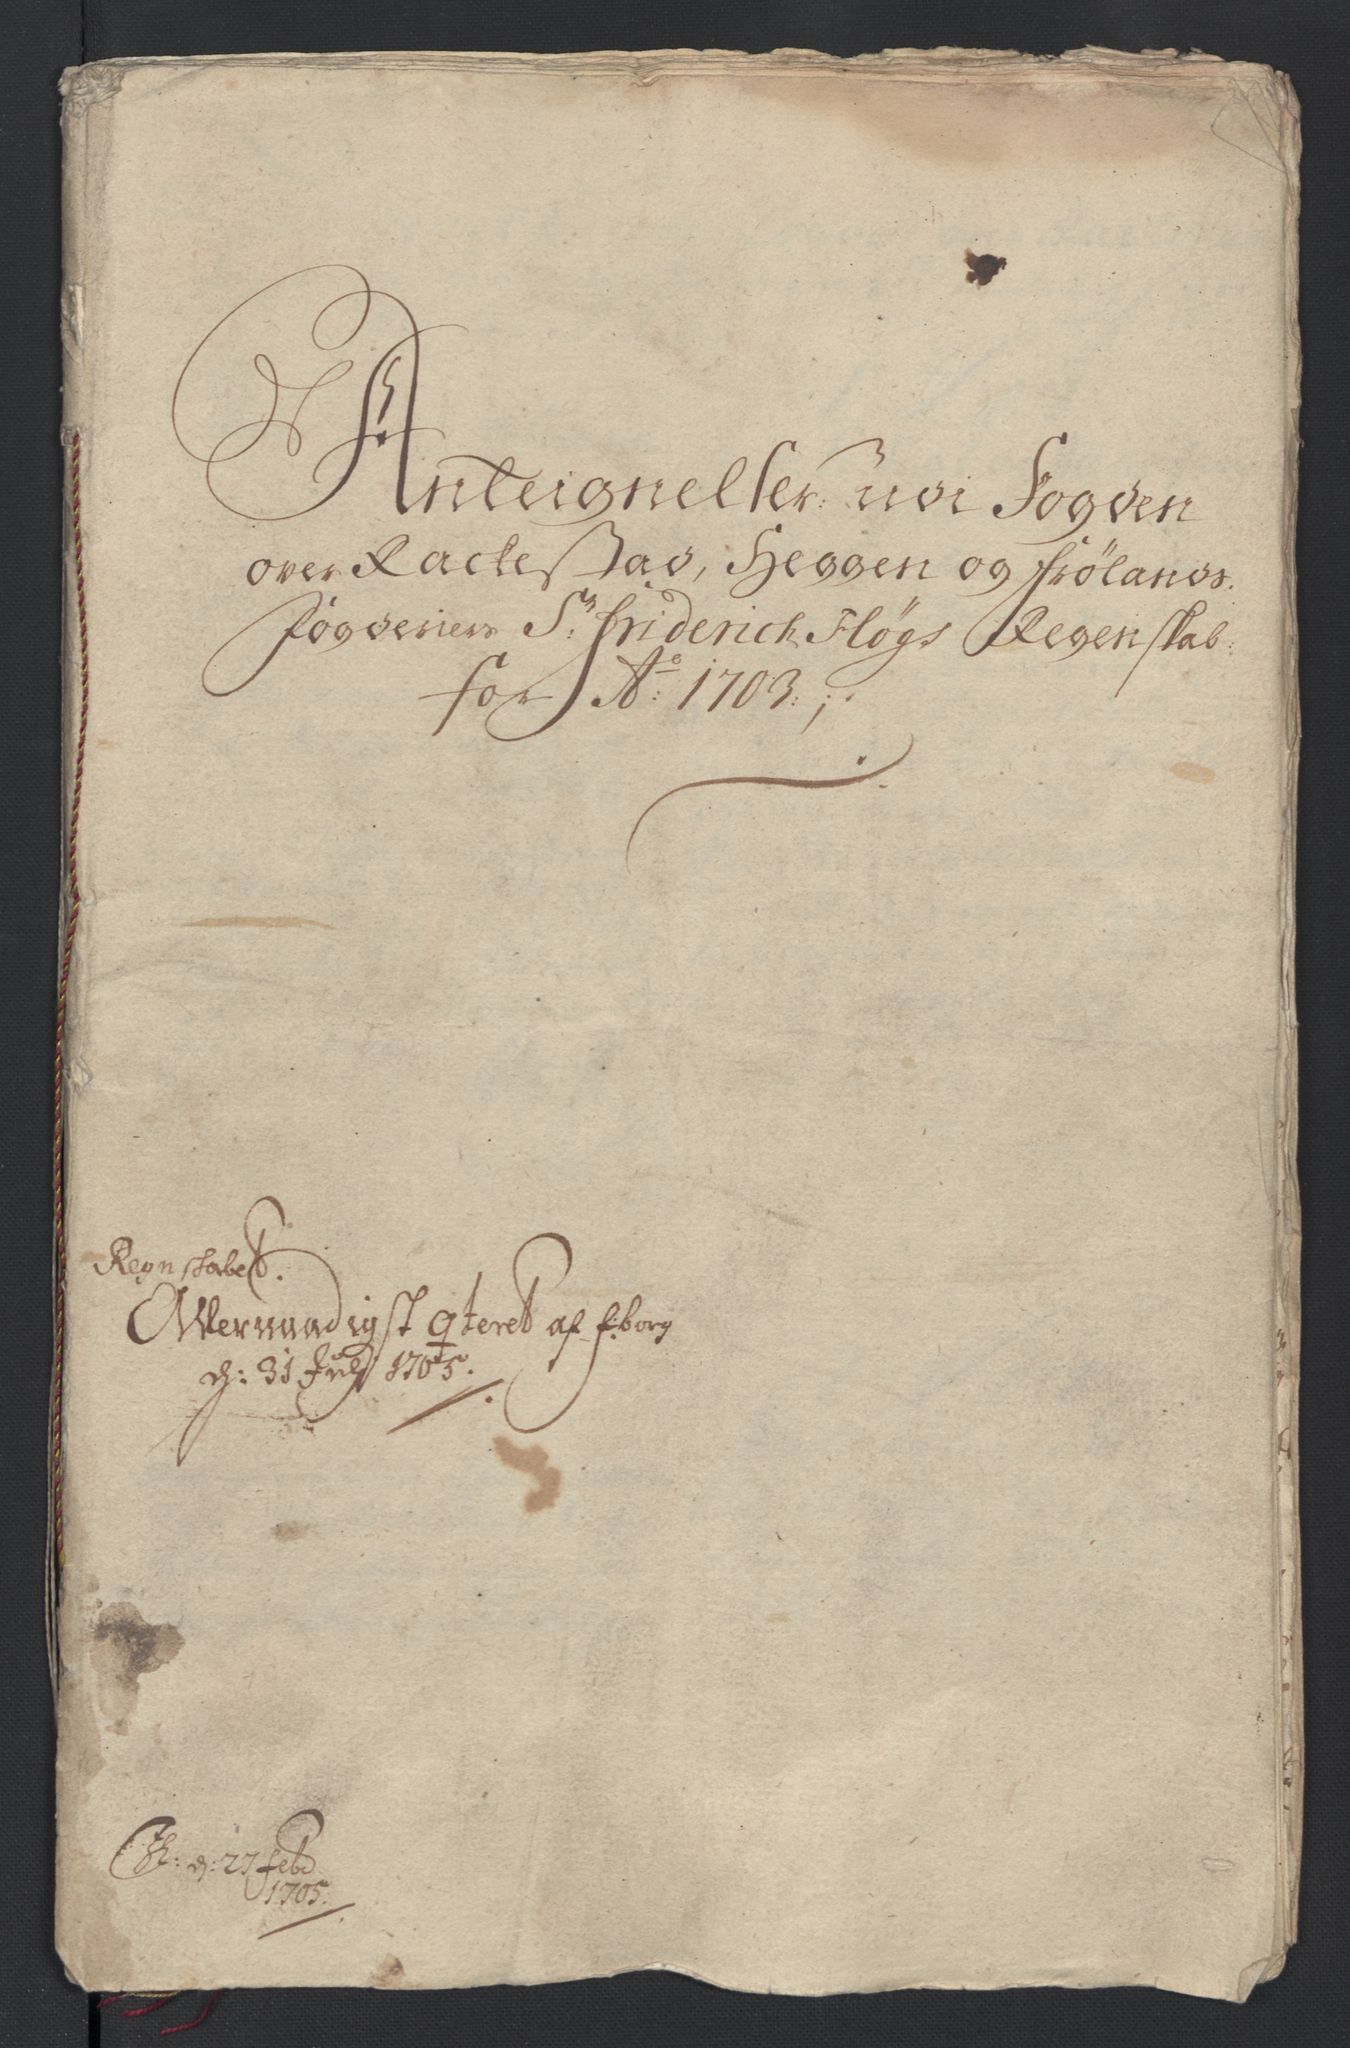 Anteignelser udi Fogden
over Rackestad, Heggen og Frölands:
Fögderiers Sr: Friderich Flögs Regenskab:
for Ao: 1703:;
Regnskabet.
Allernaadigst qteret af f:borg
d: 31 July 1705.
d: 27 febr
1705.